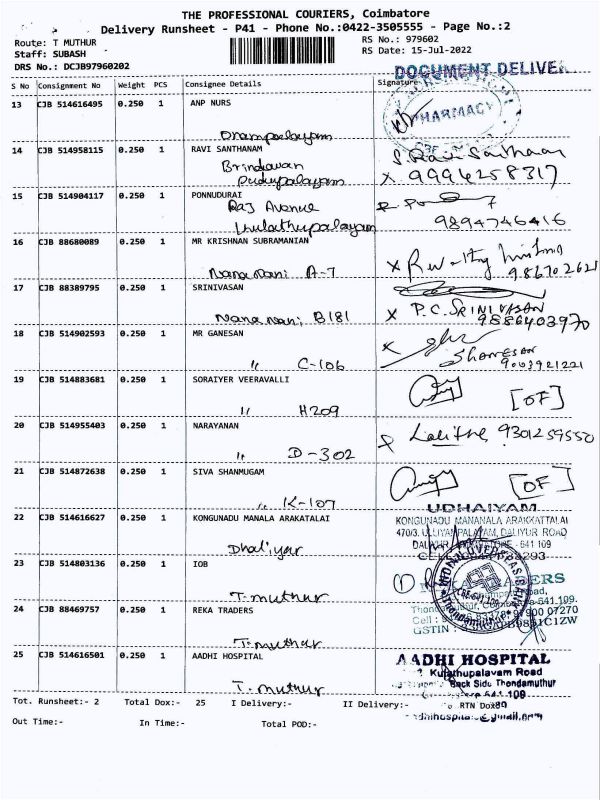 THE PROFESSIONAL COURIERS, Coimbatore
Delivery Runsheet - P41 - Phone No.:0422-3505555 - Page No.:2
Route: T MUTHUR RS No.: 979602
Staff: SUBASH RS Date: 15-Jul-2022
DRS No.: DCJB97960202
DOCUMENT DELIVER
S No Consignment No Weight PCS Consignee Details Signature
13 CJB 514616495 0.250 1 ANP NURS
PHARMACY
14 CJB 514958115 0.250 1 RAVI SANTHANAM
Brindavan
Pudupalayam
9994258317
15 CJB 514904117 0.250 1 PONNUDURAI
Raj Avenue
Kulathupalayam
9894746416
16 CJB 88680089 0.250 1 MR KRISHNAN SUBRAMANIAN
Nana nani A-7
17 CJB 88389795 0.250 1 SRINIVASAN
Nana nani B181
X P.C. SRINIVASAN
9886403970
18 CJB 514902593 0.250 1 MR GANESAN
" C-106
9003921221
19 CJB 514883681 0.250 1 SORAIYER VEERAVALLI
" H209
[OF]
20 CJB 514955403 0.250 1 NARAYANAN
" D-302
Lalitha 9301259550
21 CJB 514872638 0.250 1 SIVA SHANMUGAM
" K-107
[OF]
22 CJB 514616627 0.250 1 KONGUNADU MANALA ARAKATALAI
Dhaliyur
UDHAIYAM
KONGUNADU MANANALA ARAKKATTALAI
470/3, ULIYAMPALAYAM, DALIYUR ROAD
23 CJB 514803136 0.250 1 IOB
T. muthur
24 CJB 88469757 0.250 1 REKA TRADERS
T. muthur
25 CJB 514616501 0.250 1 AADHI HOSPITAL
T. muthur
AADHI HOSPITAL
Kulathupalayam Road
Back Side Thondamuthur
Tot. Runsheet:- 2 Total Dox:- 25 I Delivery:- II Delivery:- RTN Dox
Out Time:- In Time:- Total POD:-